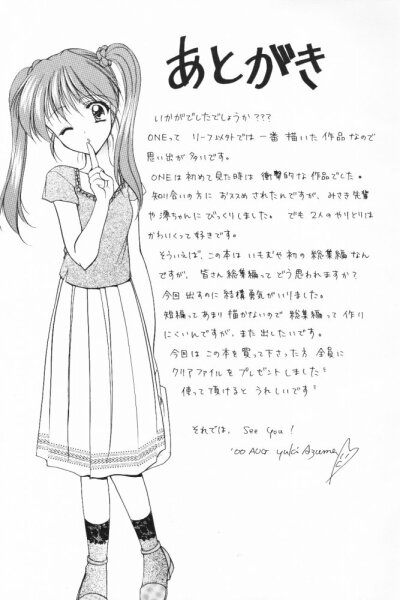 あとがき
いかがでしたでしょうか???
ONEって リーフ以外では一番 描いた作品なので
思い出が多いです。
ONEは初めて見た時は 衝撃的な作品でした。
知り合いの方に おススメされたんですが、みさき先輩
や澪ちゃんにびっくりしました。 でも 2人のやりとりは
かわいくって好きです。
そういえば、この本は いもむや初の 総集編なん
ですが、皆さん総集編ってどう思われますか?
今回 出すのに結構勇気がいりました。
短編ってあまり描かないので総集編って作り
にくいんですが、また出したいです。
今回はこの本を買って下さった方 全員に
クリアファイルを プレゼントしました
使って頂けると うれしいです
それでは、 See you!
'00 AUG yuki Azuma